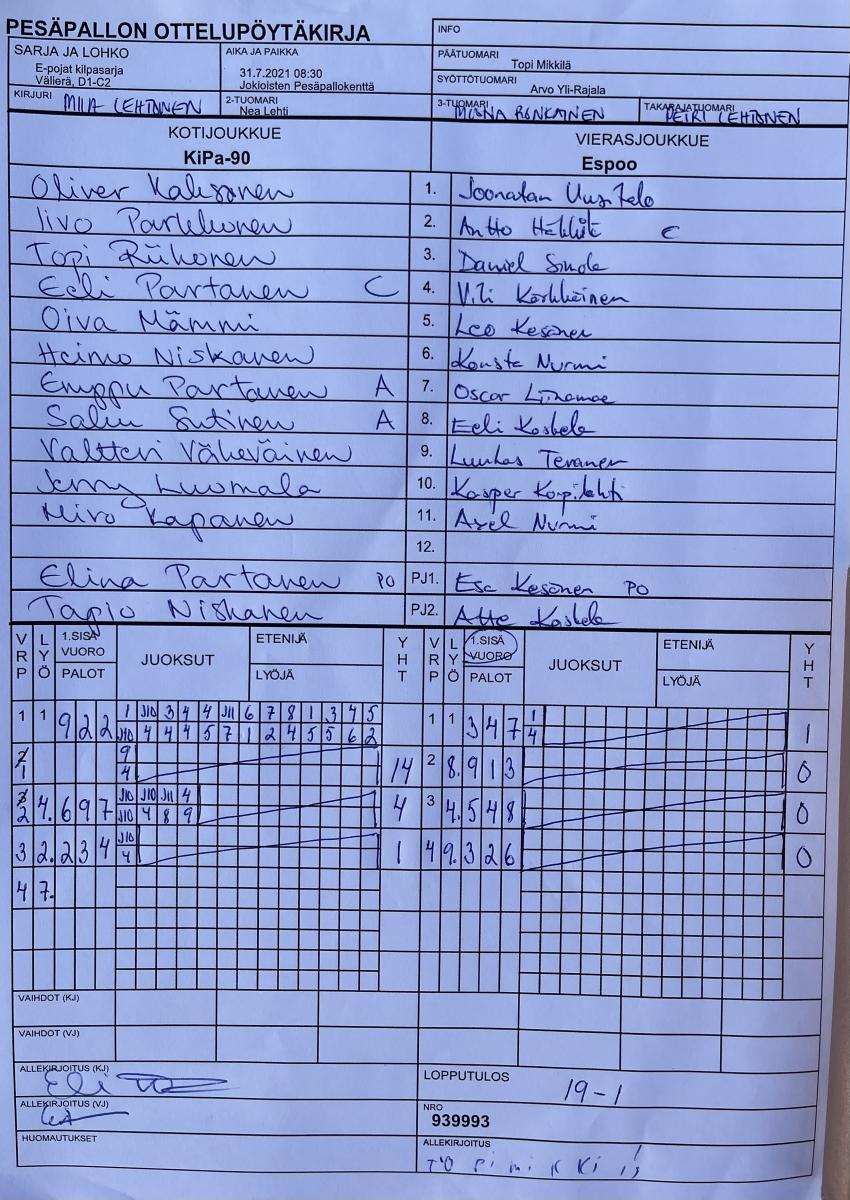 PESÄPALLON OTTELUPÖYTÄKIRJA
INFO
SARJA JA LOHKO
E-pojat kilpasarja
Välierä, D1-C2
AIKA JA PAIKKA
31.7.2021 08:30
Jokioisten Pesäpallokenttä
PÄÄTUOMARI
Topi Mikkilä
SYÖTTÖTUOMARI
Arvo Yli-Rajala
KIRJURI MIIA LEHTONEN
2-TUOMARI
Nea Lehti
3-TUOMARI
RONKAINEN
TAKARAJATUOMARI
PETRI LEHTONEN
KOTIJOUKKUE
KiPa-90
VIERASJOUKKUE
Espoo
Oliver 1. Joonatan Uusitalo
Iivo Parkkonen 2. Antto C
Topi Riikonen 3. Daniel
Eeli Partanen C 4. Vili Karkkainen
Oiva Mämmi 5. Leo Kesonen
Heimo Niskanen 6. Konsta Nurmi
Emppu Partanen A 7. Oscar
Salu Sutinen A 8. Eeli Koskela
Valtteri Väheväinen 9. Luukas Teranen
Jenny Luomala 10. Kasper Korpilahti
Miro Kapanen 11. Axel Nurmi
12.
Elina Partanen PO PJ1. Esa Kesonen PO
Tapio Niskanen PJ2. Atte Koskela
VRP LYÖ 1.SISÄ VUORO PALOT JUOKSUT ETENIJÄ LYÖJÄ YHT VRP LYÖ 1.SISÄ VUORO PALOT JUOKSUT ETENIJÄ LYÖJÄ YHT
1 1 9 2 2 1 J10 3 4 4 J11 6 7 8 1 3 4 5
J10 4 4 4 5 7 1 2 4 5 5 6 2
1 1 3 4 7 1
4 1
1 9
4 14
2 8. 9 1 3 0
2 4. 6 9 7 J10 J10 J11 4
J10 4 8 9 4
3 4. 5 4 8 0
3 2. 2 3 4 J10
4 1
4 9. 3 2 6 0
4 7.
VAIHDOT (KJ)
VAIHDOT (VJ)
ALLEKIRJOITUS (KJ)
LOPPUTULOS
19-1
ALLEKIRJOITUS (VJ)
NRO
939993
HUOMAUTUKSET
ALLEKIRJOITUS